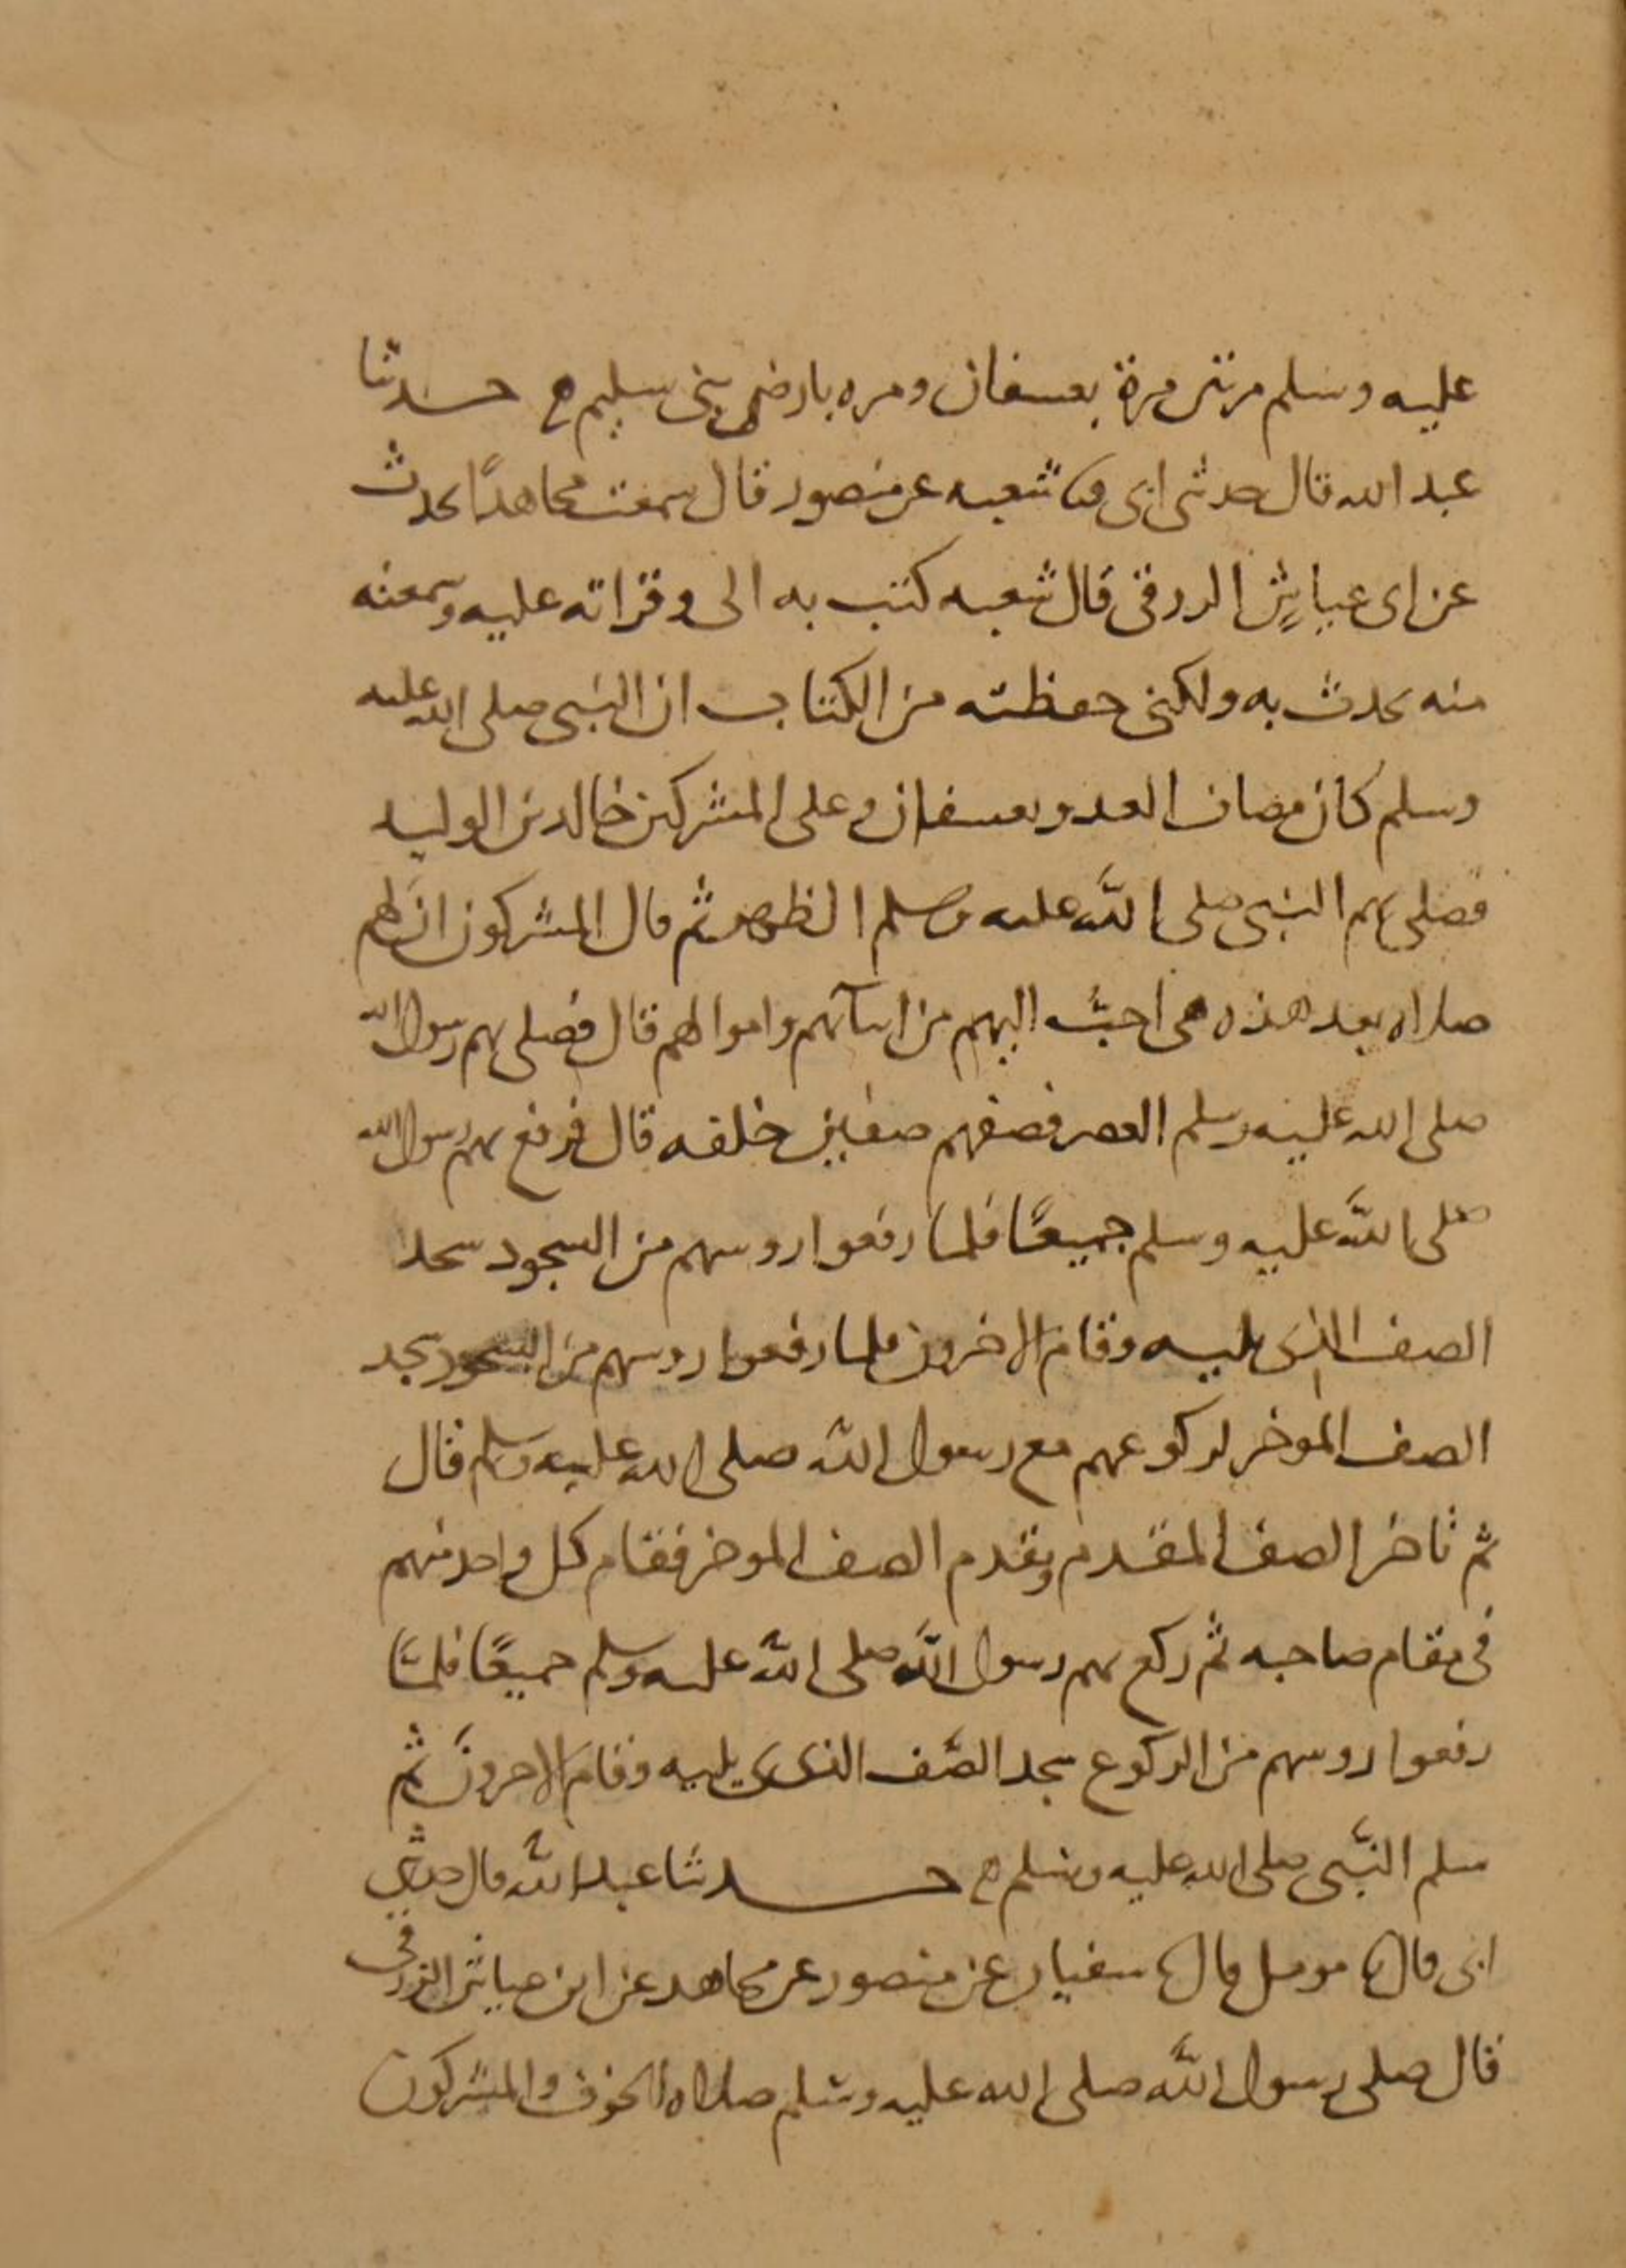 عليه وسلم مرتين مرة بعسفان ومره بارض بني سليم ح حدثنا
عبد الله قال حدثني ابي شعبه عن منصور قال سمعت مجاهدًا يحدث
عن ابي عياش الزرقي قال شعبه كتب به الي وقراته عليه وسمعته
منه يحدث به ولكني حفظته من الكتاب ان النبي صلى الله عليه
وسلم كان مصاف العدو بعسفان وعلى المشركين خالد بن الوليد
فصلى بهم النبي صلى الله عليه وسلم الظهر ثم قال المشركون ان لهم
صلاه بعد هذه هي احبّ اليهم من ابنآئهم واموالهم قال فصلى بهم رسول الله
صلى الله عليه وسلم العصر فصفهم صفين خلفه قال فركع بهم رسول الله
صلى الله عليه وسلم جميعًا فلما رفعوا روسهم من السجود سجد
الصف الذي يليه وقام الاخرون فلما رفعوا روسهم من السجود سجد
الصف الموخر لركوعهم مع رسول الله صلى الله عليه وسلم قال
ثم تاخر الصف المقدم وتقدم الصف الموخر فقام كل واحد منهم
في مقام صاحبه ثم ركع بهم رسول الله صلى الله عليه وسلم جميعًا فلمّا
رفعوا روسهم من الركوع سجد الصّف الذي يليه وقام الاخرونَ ثم
سلم النبّي صلى الله عليه وسلم ح حدثنا عبد الله قال حدثني
ابي قال مومل قال سفيان عن منصور عن مجاهد عن ابن عياش الزرقي
قال صلى رسول الله صلى الله عليه وسلم صلاه الخوف والمشركون